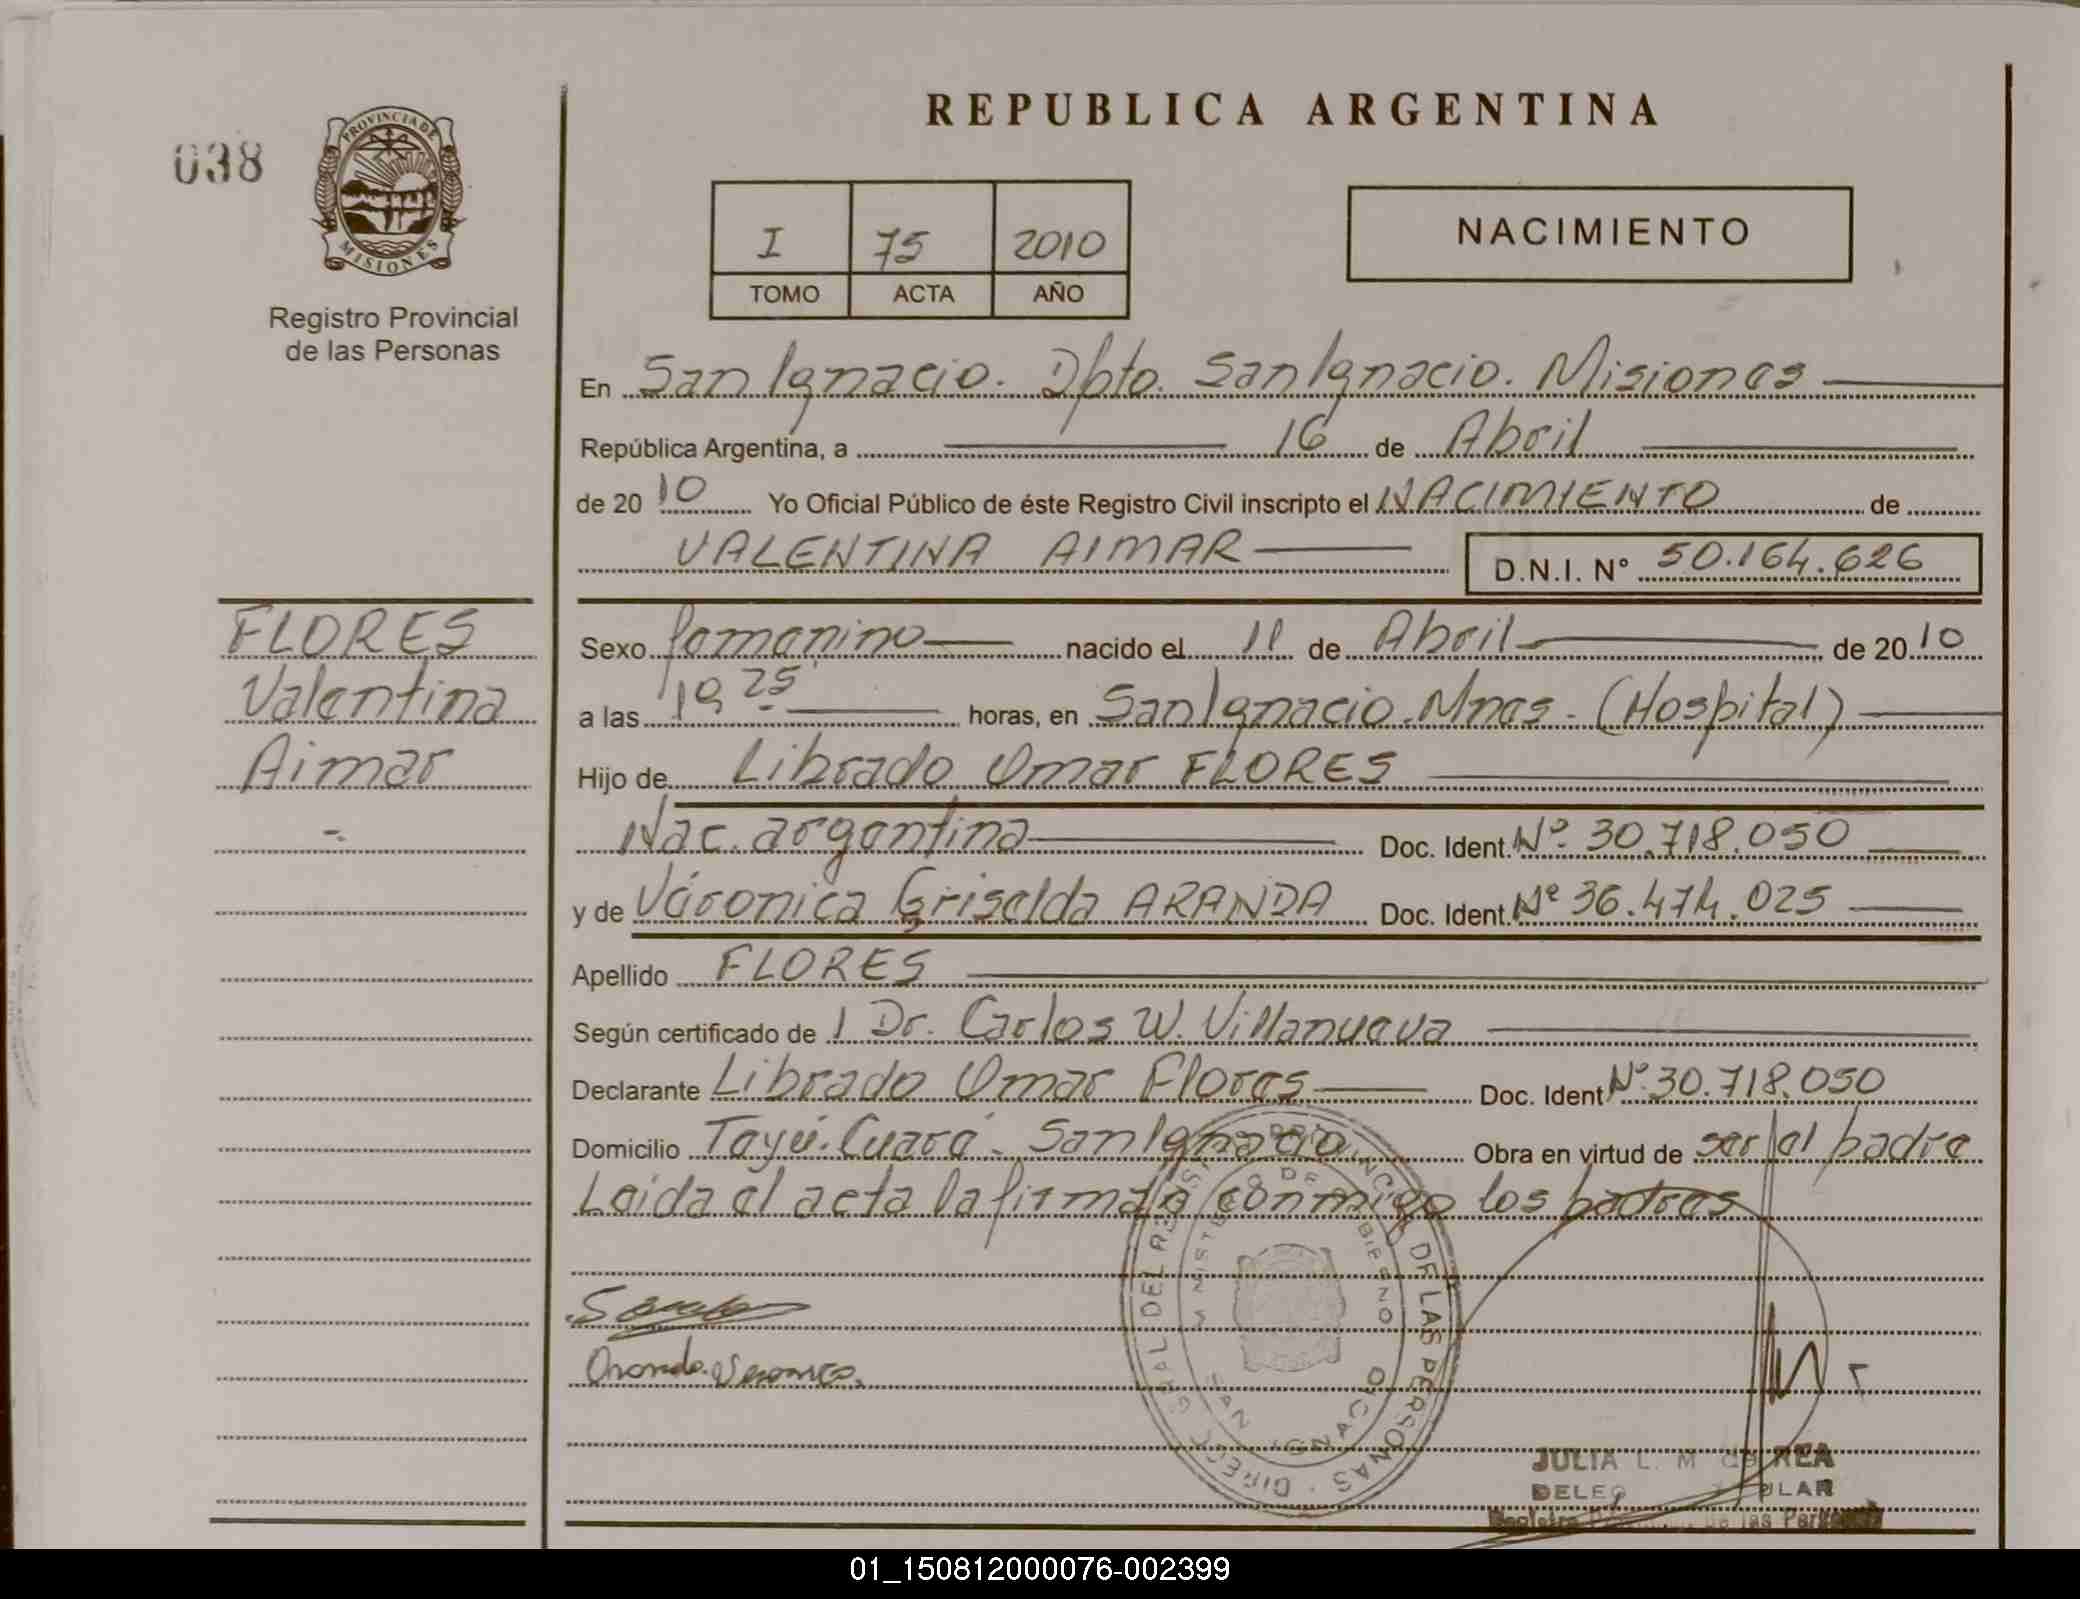 REPUBLICA ARGENTINA
038
PROVINCIA DE
MISIONES
Registro Provincial
de las Personas
I 75 2010
TOMO ACTA AÑO
NACIMIENTO
En San Ignacio. Dpto. San Ignacio. Misiones
República Argentina, a 16 de Abril
de 20 10 Yo Oficial Público de éste Registro Civil inscripto el NACIMIENTO de
VALENTINA AIMAR D.N.I. Nº 50.164.626
FLORES
Valentina
Aimar
Sexo femenino nacido el 11 de Abril de 20 10
a las 19 25 horas, en San Ignacio. Mnes. (Hospital)
Hijo de Librado Omar FLORES
Nac. argentina Doc. Ident. Nº 30.718.050
y de Véronica Griselda ARANDA Doc. Ident. Nº 36.474.025
Apellido FLORES
Según certificado de 1 Dr. Carlos W. Villanueva
Declarante Librado Omar Flores Doc. Ident Nº 30.718.050
Domicilio Teyú. Cuaré. San Ignacio Obra en virtud de ser el padre
Leida el acta la firman conmigo los padres
DIRECC. GRAL DEL REGISTRO PROVINCIAL DE LAS PERSONAS
MINISTERIO DE GOBIERNO
SAN IGNACIO
JULIA L. M de REA
de las
01_150812000076-002399